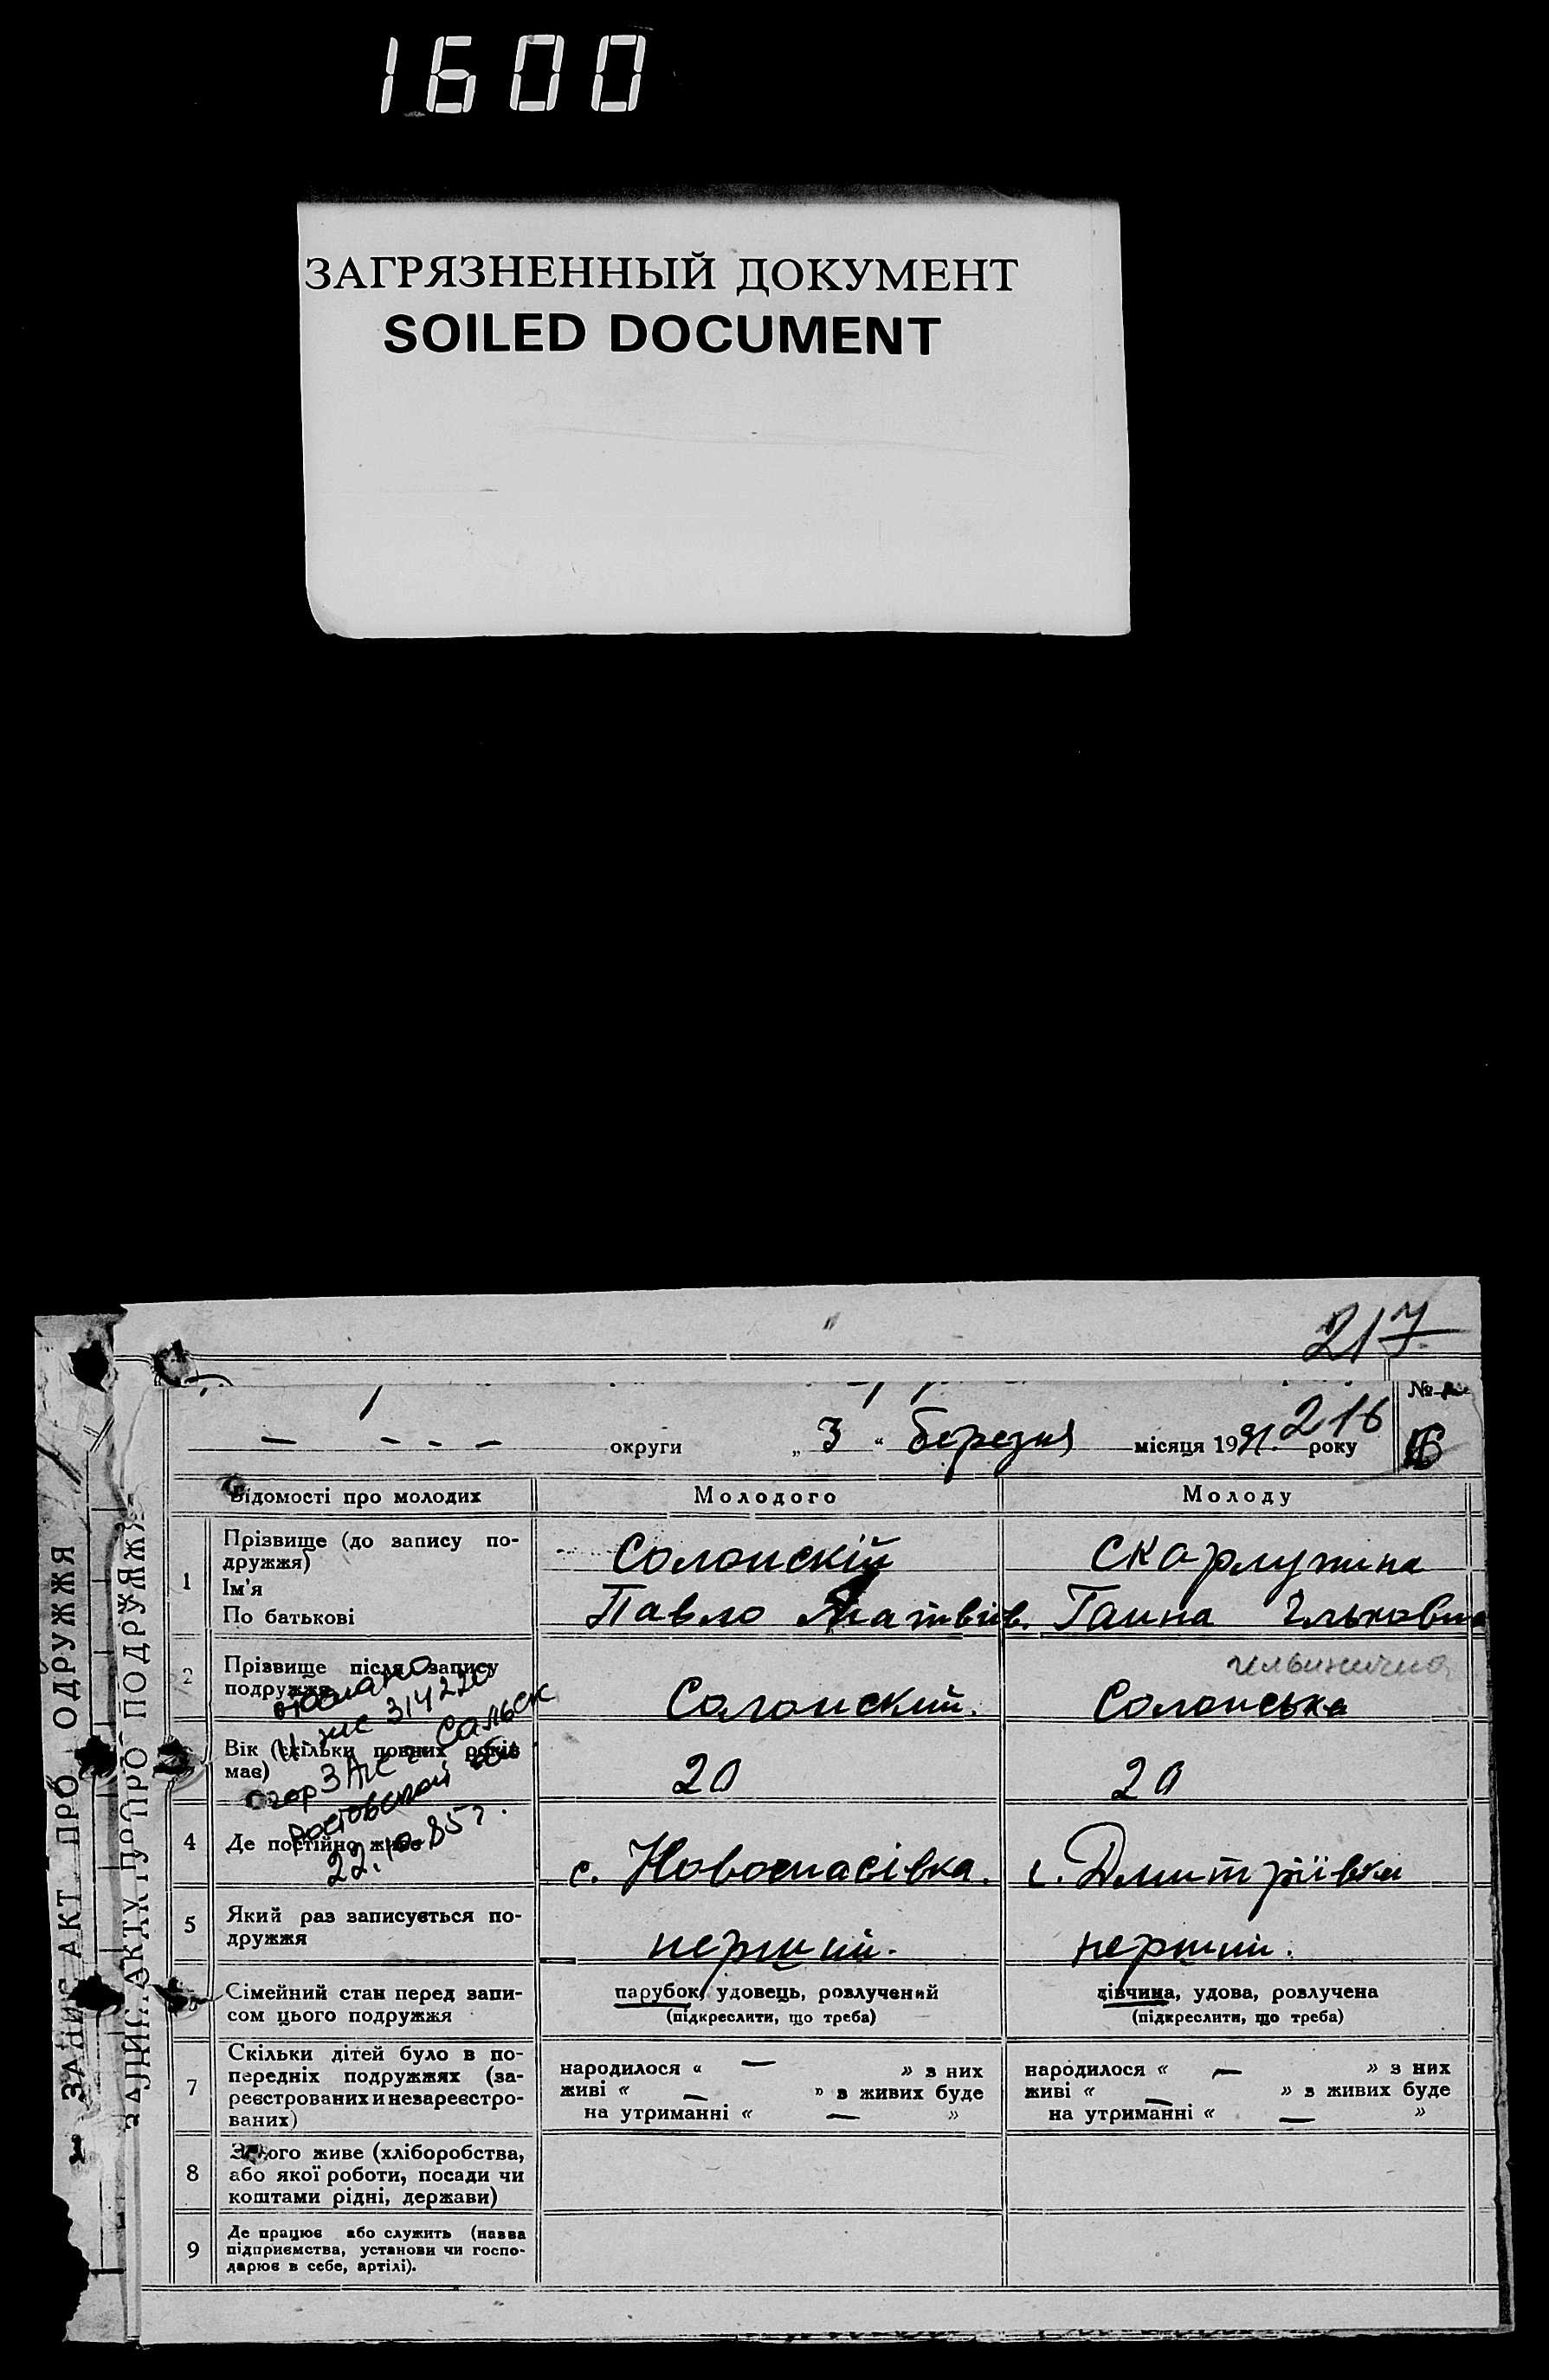 1600
ЗАГРЯЗНЕННЫЙ ДОКУМЕНТ
SOILED DOCUMENT
217
№
округи „ 3 “ березня місяця 1931. року
216
Відомості про молодих
Молодого
Молоду
1
Прізвище (до запису по-
дружжя)
Ім'я
По батькові
Солонскій
Павло Матвіїв.
Ганна Ількова
2
Прізвище після запису
подружжя
Солонский.
Солонська
Вік (скільки повних років
має)
20
20
4
Де постійно живе
с. Новоспасівка.
с. Дмитріївка
5
Який раз записується по-
дружжя
перший.
перший.
Сімейний стан перед запи-
сом цього подружжя
парубок, удовець, розлучений
(підкреслити, що треба)
дівчина, удова, розлучена
(підкреслити, що треба)
7
Скільки дітей було в по-
передніх подружжях (за-
реєстрованих и незареєстро-
ваних)
народилося « — » з них
живі « — » з живих буде
на утриманні « — »
народилося « — » з них
живі « — » з живих буде
на утриманні « — »
8
З чого живе (хліборобства,
або якої роботи, посади чи
коштами рідні, держави)
9
Де працює або служить (назва
підприємства, установи чи госпо-
дарює в себе, артілі).
314220
гор ЗАГС г. Сальск
Ростовской обл.
22.10.85 г.
ЗАПИС АКТ ПРО ОДРУЖЖЯ
ЗАПИС АКТУ ПРО ПОДРУЖЖЯ